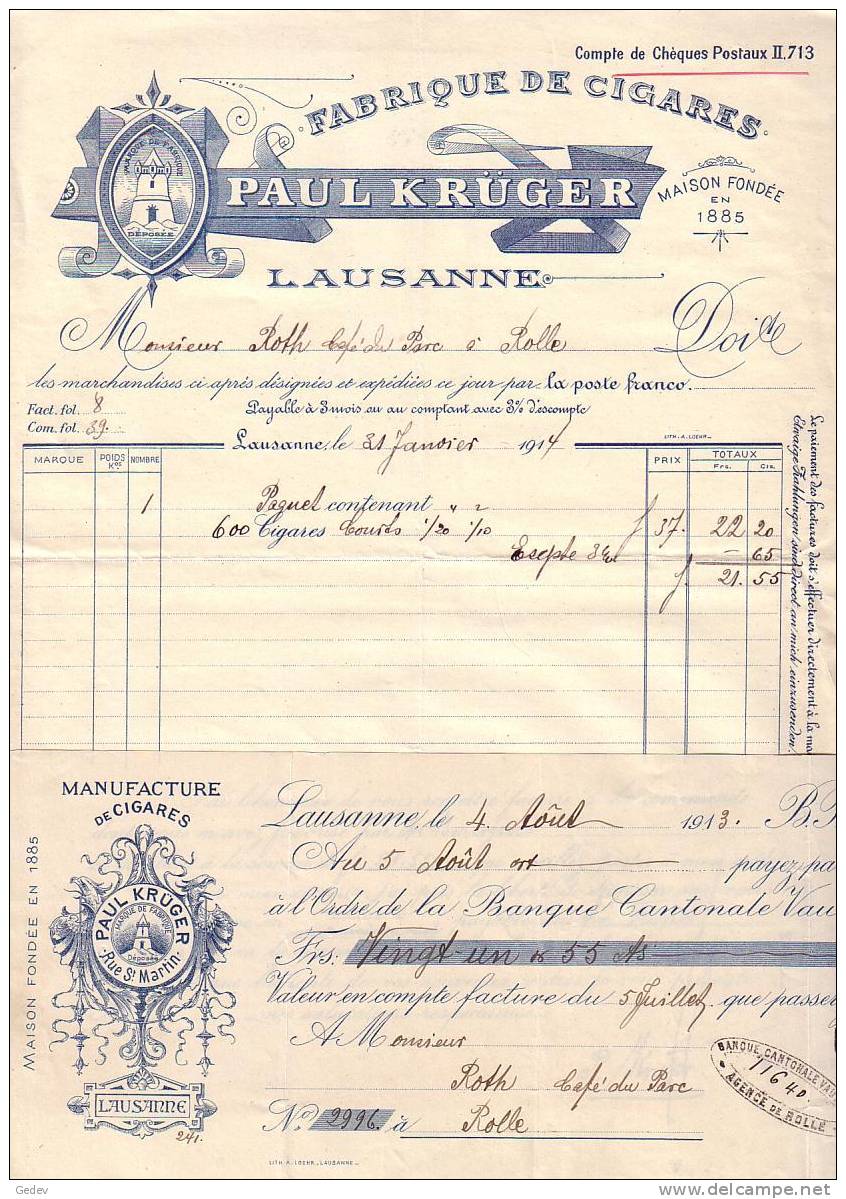 Compte de Chèques Postaux II.713
FABRIQUE DE CIGARES.
MARQUE DE FABRIQUE
DÉPOSÉE
PAUL KRÜGER
MAISON FONDÉE
EN
1885
LAUSANNE
Monsieur Roth Café du Parc à Rolle Doit
les marchandises ci après désignées et expédiées ce jour par la poste franco.
Fact. fol. 8
Payable à 3 mois ou au comptant avec 3% d'escompte
Com. fol. 39.
Lausanne, le 31 Janvier 1914
LITH. A. LOEHR
MARQUE POIDS Kos NOMBRE PRIX TOTAUX
Frs. Cts.
1 Paquet contenant " "
600 Cigares Courts 1/20 1/10 f 37. 22 20
Escpte 3% — 65
f. 21. 55
Le paiement des factures doit s'effectuer directement à la ma
Etwaige Zahlungen sind direct an mich einzusenden.
MANUFACTURE
DE CIGARES
MAISON FONDÉE EN 1885
PAUL KRÜGER
MARQUE DE FABRIQUE
Déposée
Rue St Martin
LAUSANNE
241.
Lausanne, le 4 Août 1913. B.P
Au 5 Août crt payez pa
à l'Ordre de la Banque Cantonale Vau
Frs: Vingt un & 55 cts
Valeur en compte facture du 5 Juillet que passer
A Monsieur
Roth Café du Parc
No 2996. à Rolle
BANQUE CANTONALE VAU
11640.
AGENCE DE ROLLE
LITH. A. LOEHR, LAUSANNE
Gedev
delcampe.net